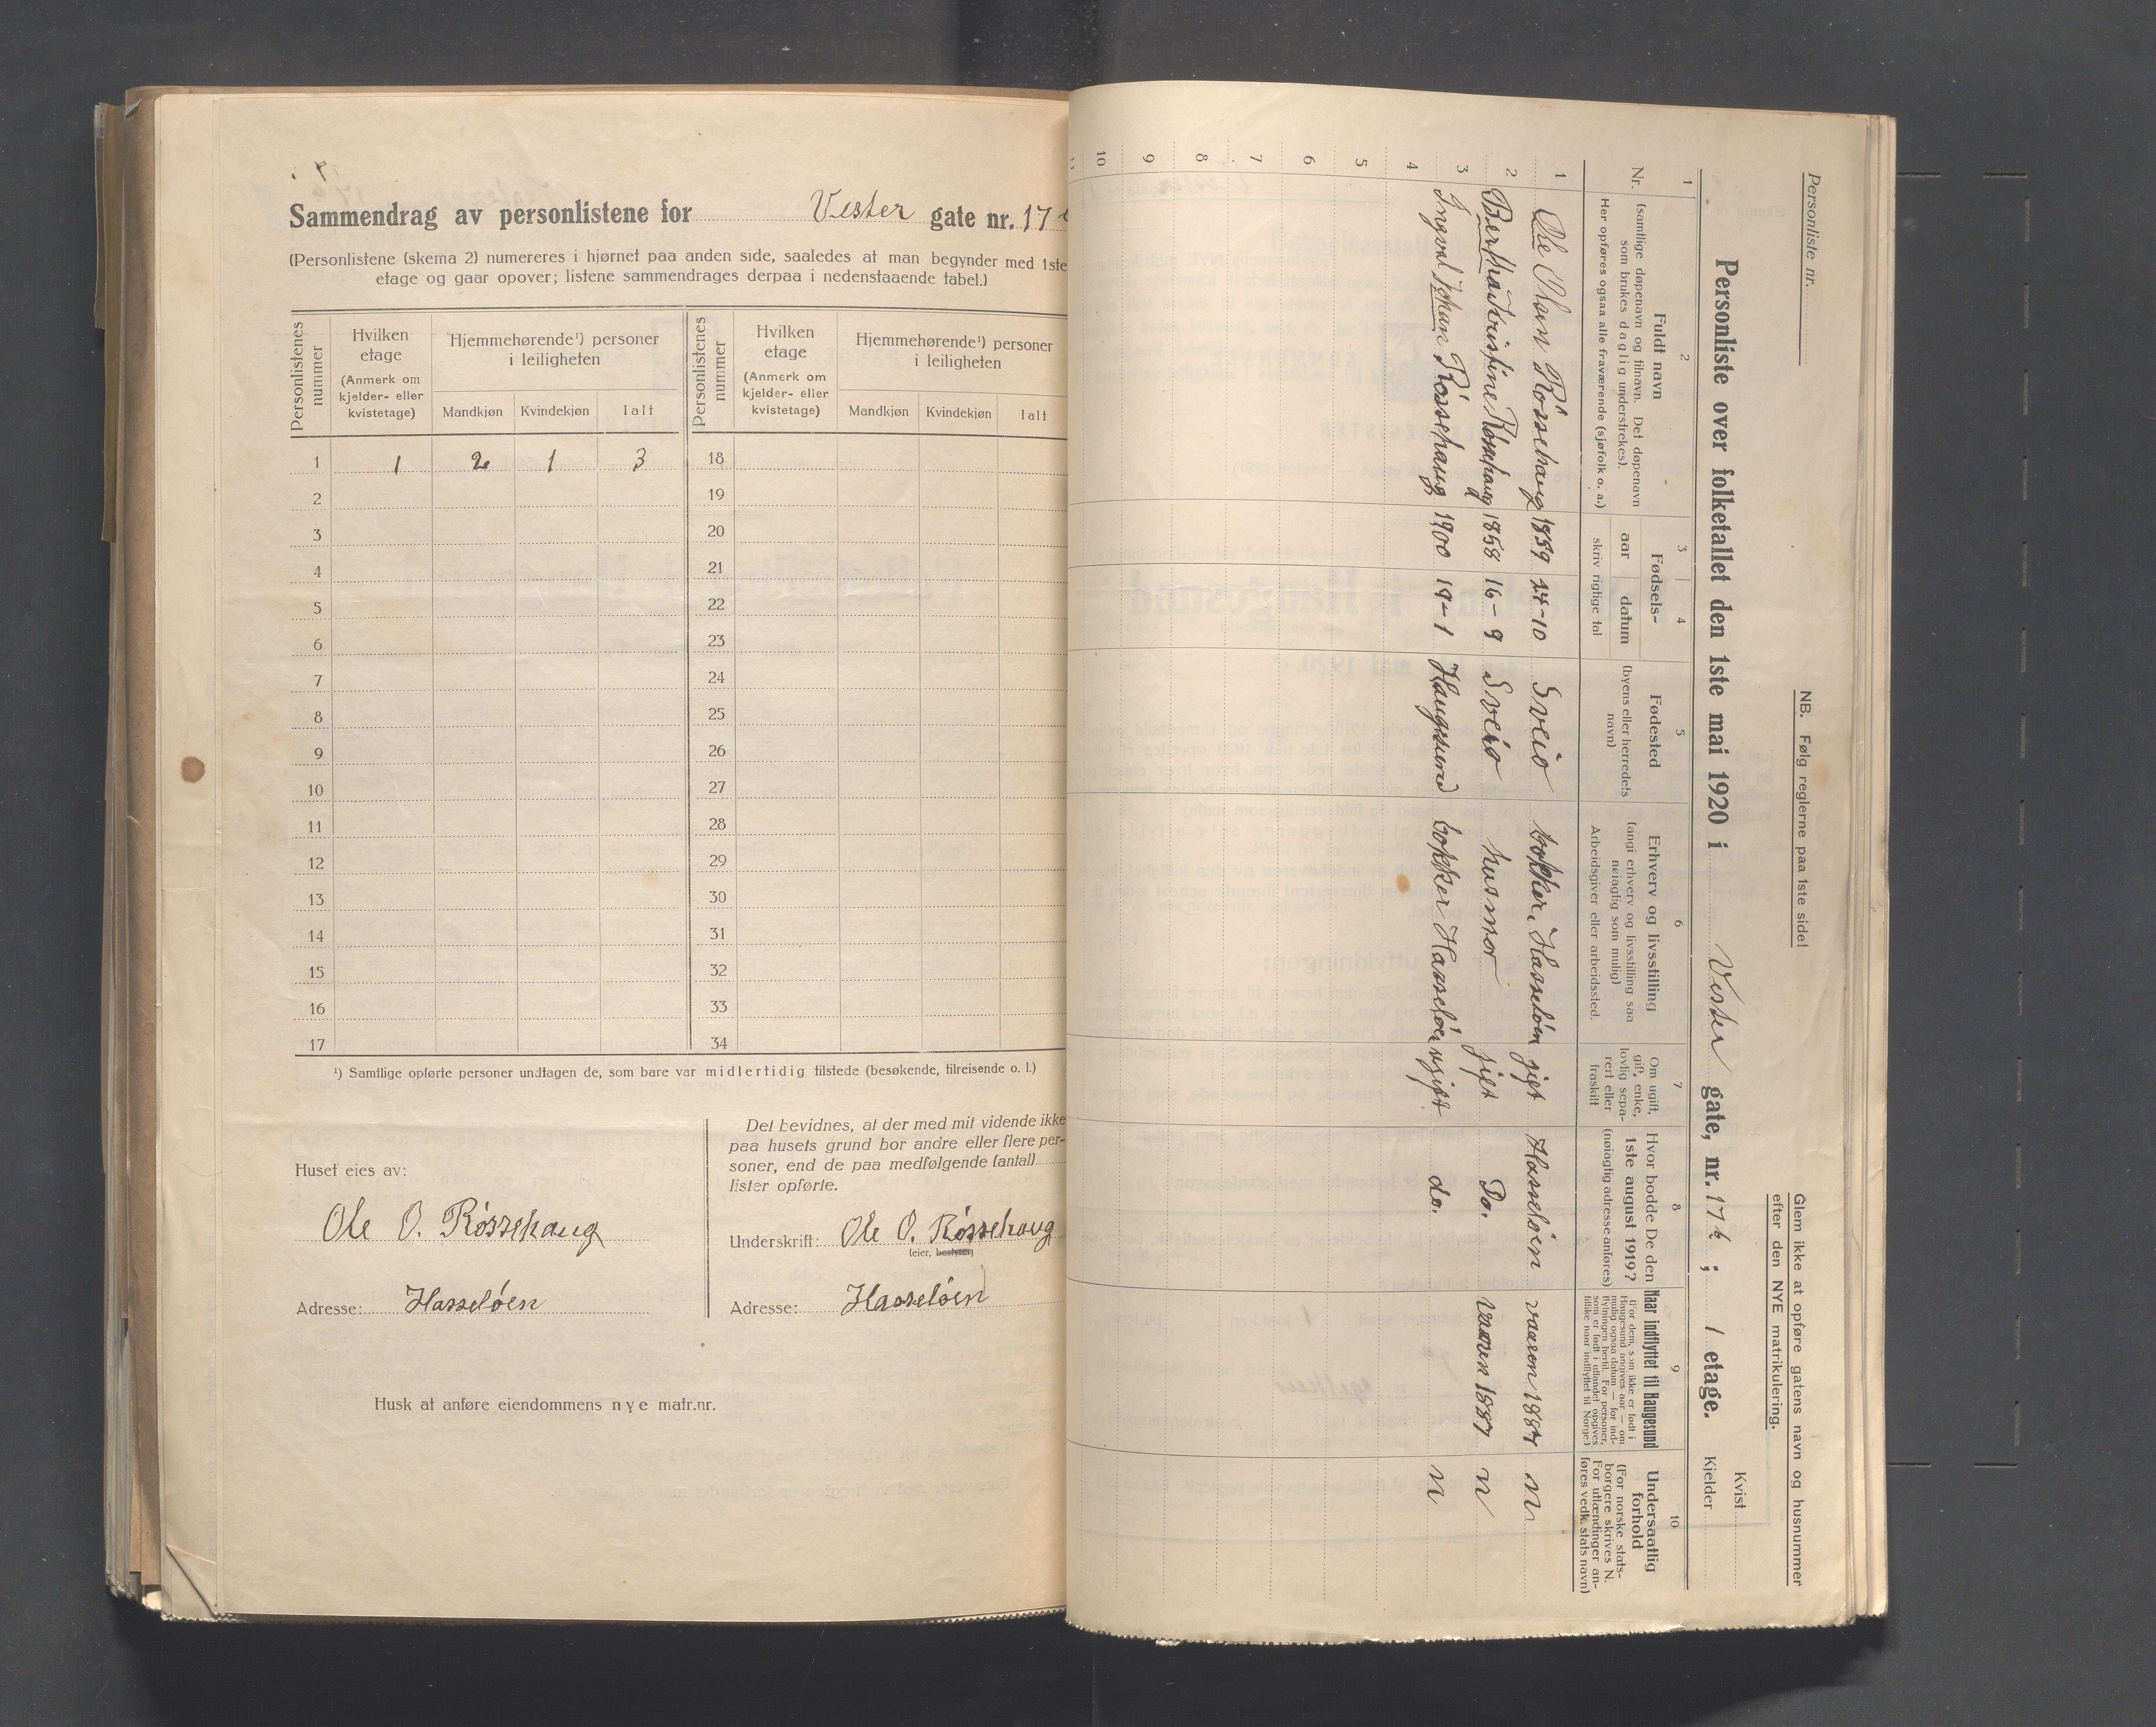 Sammendrag av personlistene for Vester gate nr. 17
(Personlistene (skema 2) numereres i hjørnet paa anden side, saaledes at man begynder med 1ste
etage og gaar opover; listene sammendrages derpaa i nedenstaaende tabel.)
Personlistenes nummer
Hvilken etage (Anmerk om kjelder- eller kvistetage)
Hjemmehørende¹) personer i leiligheten
Mandkjøn Kvindekjøn Ialt
Personlistenes nummer
Hvilken etage (Anmerk om kjelder- eller kvistetage)
Hjemmehørende¹) personer i leiligheten
Mandkjøn Kvindekjøn Ialt
1 1 2 1 3 18
2 19
3 20
4 21
5 22
6 23
7 24
8 25
9 26
10 27
11 28
12 29
13 30
14 31
15 32
16 33
17 34
¹) Samtlige opførte personer undtagen de, som bare var midlertidig tilstede (besøkende, tilreisende o. l.)
Huset eies av:
Ole O. Røssehaug
Adresse: Hasseløen
Det bevidnes, at der med mit vidende ikke
paa husets grund bor andre eller flere per-
soner, end de paa medfølgende (antal)
lister opførte.
Underskrift: Ole O. Røssehaug
(eier, bestyrer)
Adresse: Hasseløen
Husk at anføre eiendommens nye matr.nr.
Personliste nr.
NB. Følg reglerne paa 1ste side!
Glem ikke at opføre gatens navn og husnummer
efter den NYE matrikulering.
Personliste over folketallet den 1ste mai 1920 i Vester gate, nr. 17 b ; 1 etage.
Kvist
Kjelder
1 2 3 4 5 6 7 8 9 10
Nr.
Fuldt navn
(samtlige døpenavn og tilnavn. Det døpenavn
som brukes daglig understrekes).
Her opføres ogsaa alle fraværende (sjøfolk o. a.)
Fødsels-
aar datum
skriv rigtige tal
Fødested
(byens eller herredets
navn)
Erhverv og livsstilling
(angi erhverv og livsstilling saa
nøiagtig som mulig)
Arbeidsgiver eller arbeidssted.
Om ugift,
gift, enke,
lovlig sepa-
rert eller
fraskilt
Hvor bodde De den
1ste august 1919?
(nøiagtig adresse anføres)
Naar indflyttet til Haugesund
(For dem, som ikke er født i
Haugesund angives aar — om
mulig ogsaa datum — for ind-
flytningen hertil. For personer,
som er født i utlandet opgives
tillike naar indflyttet til Norge.)
Undersaatlig
forhold
(For norske stats-
borgere skrives N.
For utlændinger an-
føres vedk. stats navn)
1 Ole Olsen Røssehaug 1859 24-10 Sveio bøkker. Hasseløen gift Hasseløen vaaren 1887 n
2 Bertha Kristine Røssehaug 1858 16-9 Sveio husmor gift Do. vaaren 1887 n
3 Ingval Johan Røssehaug 1900 19-1 Haugesund bøkker Hasseløen ugift do. n
4
5
6
7
8
9
10
11